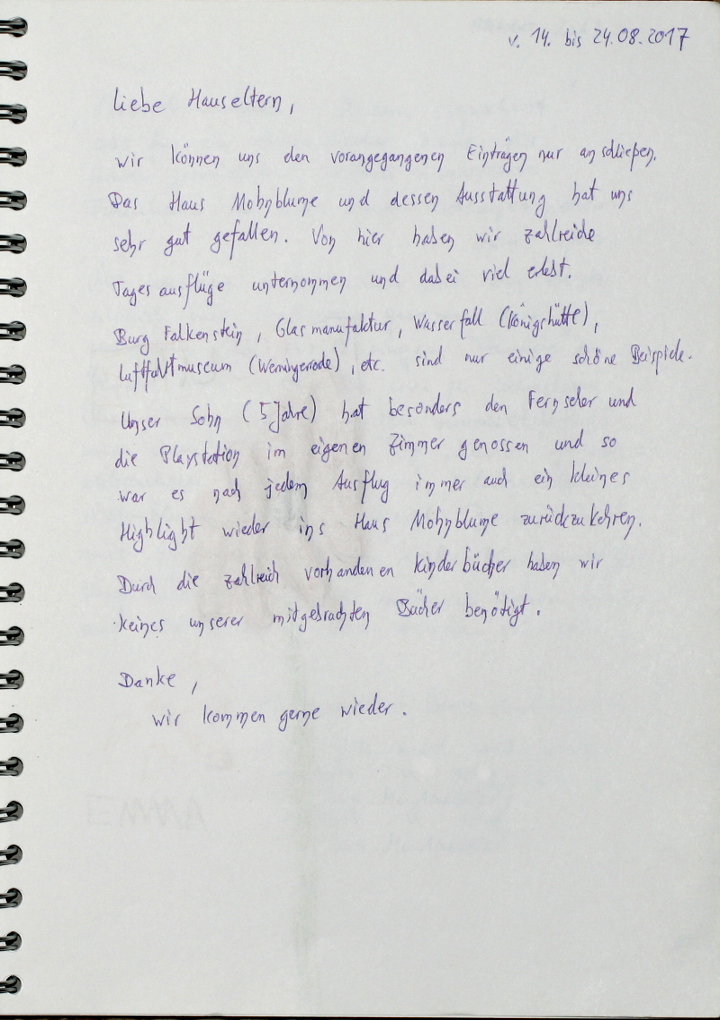 v. 14. bis 24.08.2017
Liebe Hauseltern,
wir können uns den vorangegangenen Einträgen nur anschließen.
Das Haus Mohnblume und dessen Ausstattung hat uns
sehr gut gefallen. Von hier haben wir zahlreiche
Tagesausflüge unternommen und dabei viel erlebt.
Burg Falkenstein, Glasmanufaktur, Wasserfall (Königshütte),
Luftfahrtmuseum (Wernigerode), etc. sind nur einige schöne Beispiele.
Unser Sohn (5 Jahre) hat besonders den Fernseher und
die Playstation im eigenen Zimmer genossen und so
war es nach jedem Ausflug immer auch ein kleines
Highlight wieder ins Haus Mohnblume zurückzukehren.
Durch die zahlreich vorhandenen Kinderbücher haben wir
keines unserer mitgebrachten Bücher benötigt.
Danke,
wir kommen gerne wieder.